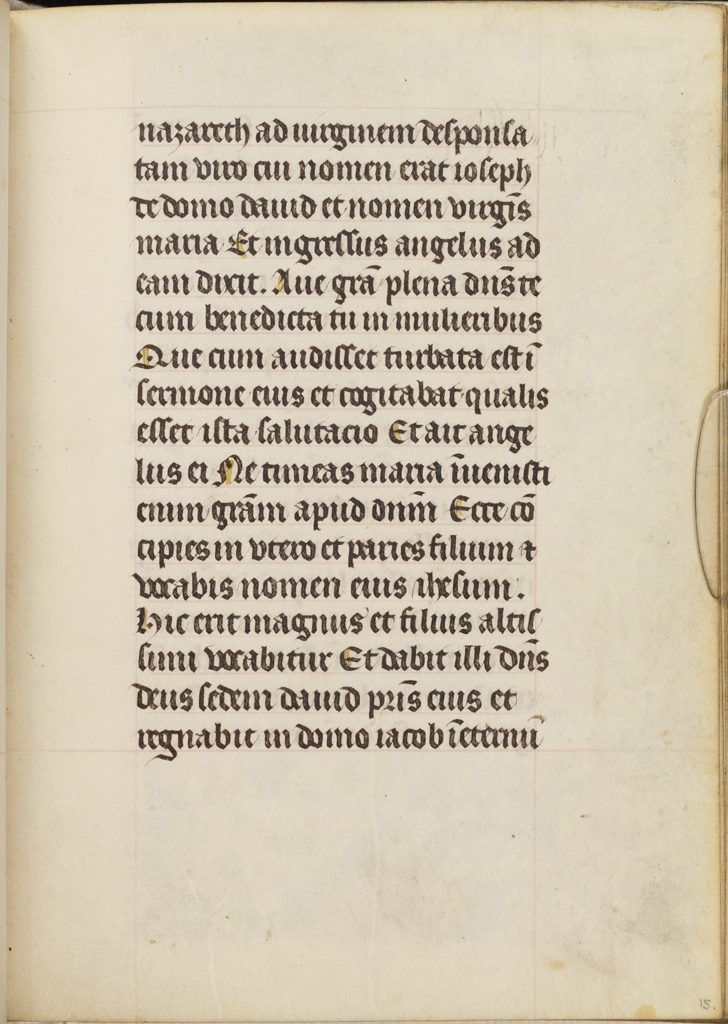 nazareth ad uirginem desponsa
tam viro cui nomen erat ioseph
de domo dauid et nomen virgīs
maria Et ingressus angelus ad
eam dixit. Aue grā plena dn̄s te
cum benedicta tu in mulieribus
Que cum audisset turbata est ī
sermone eius et cogitabat qualis
esset ista salutacio Et ait ange
lus ei Ne timeas maria īuenisti
enim grām apud dnm̄ Ecce cō
cipies in vtero et paries filium ⁊
vocabis nomen eius ihesum.
Hic erit magnus et filius altis
simi vocabitur Et dabit illi dn̄s
deus sedem dauid pr̄is eius et
regnabit in domo iacob īeternū
15.